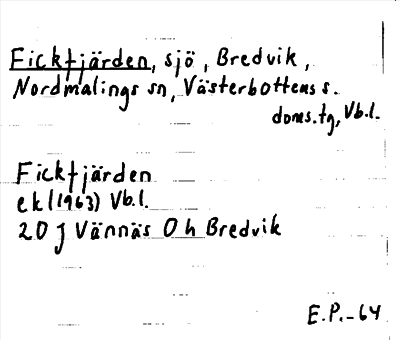 Fickfjärden, sjö, Bredvik,
Nordmalings sn, Västerbottens s.
doms.tg, Vb.l.
Fickfjärden
ek (1963) Vb.l.
20 J Vännäs 0 h Bredvik
E.P.-64